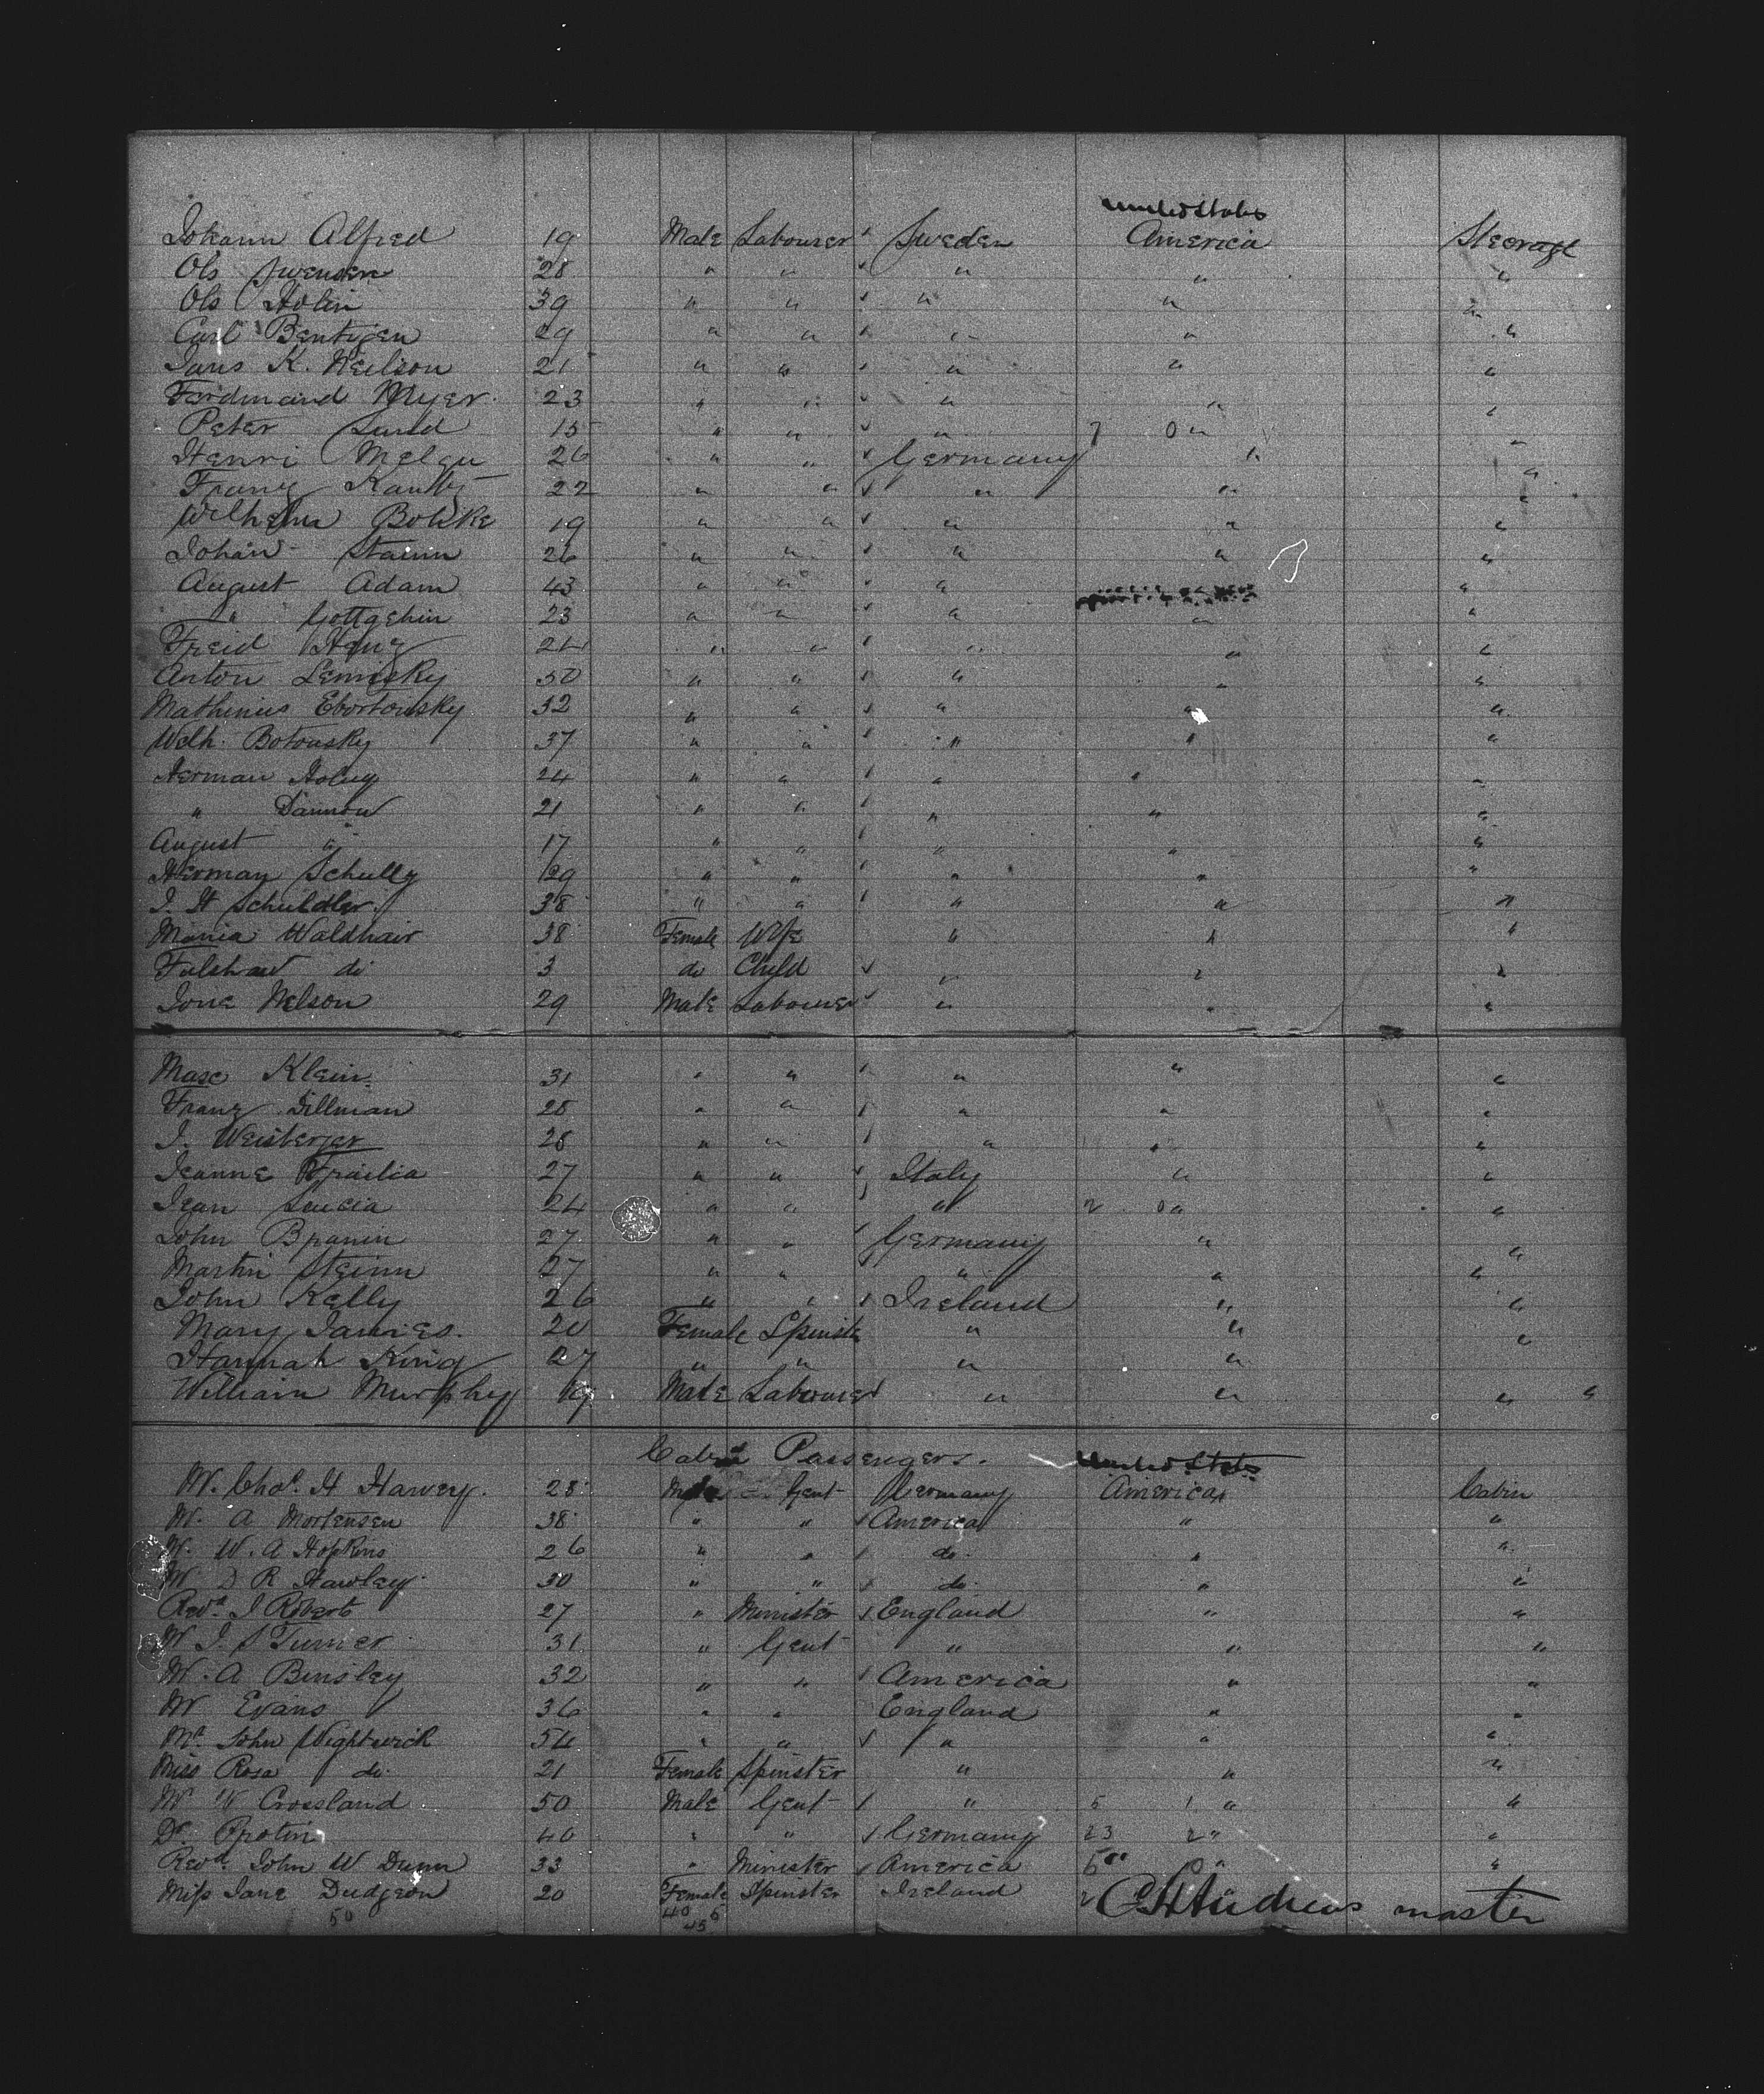 United States
Johann Alfred 19 Male Labourer Sweden America Steerage
Ols Swensen 28 " " " " "
Ols Holm 39 " " " " "
Carl Bentzen 29 " " " " "
Jans K. Neilson 21 " " " " "
Ferdinand Myer 23 " " " " "
Peter Lund 15 " " " 7 0 " "
Henri 26 " " Germany " "
Franz 22 " " " " "
Wilhelm Bohke 19 " " " " "
Johan Stamm 26 " " " " "
August Adam 43 " " " "
" 23 " " " " "
Freid 24 " " " " "
Anton 50 " " " " "
Mathinius Ebortowsky 32 " " " " "
Wilh. Botousky 37 " " " " "
Herman 24 " " " " "
" Dannow 21 " " " " "
August " 17 " " " " "
Herman Schully 29 " " " " "
J. H Schuldler 38 " " " " "
Maria Waldhair 38 Female Wife " " "
do 3 do Child " " "
Nelson 29 Male Labourer " " "
Max Klein 31 " " " " "
Franz Dillman 28 " " " " "
J. Weisberger 28 " " " " "
Jeanne 27 " " Italy " "
Jean Lucia 24 " " " 2 0 " "
John 27 " " Germany " "
Martin Steinn 27 " " " " "
John Kelly 26 " " Ireland " "
Mary James 20 Female Spinster " " "
Hannah King 27 " " " " "
William Murphy 19 Male Labourer " " " "
Cabin Passengers. United States
M. Chas. H Harvey 28 Male Gent Germany America Cabin
M. A Mortensen 38 " " America " "
M. W. A Hopkins 26 " " do " "
M D R Hawley 30 " " do " "
Revd. J Roberts 27 " Minister England " "
M J. S Turner 31 " Gent " " "
M. A Binsley 32 " " America " "
M Evans 36 " " England " "
Mr. John Wightwick 54 " " " " "
Miss Rosa do. 21 Female Spinster " " "
M W Crossland 50 Male Gent " 5 1 " "
Dr. 40 " " Germany 23 2 " "
Revd. John W Dunn 33 " Minister America 5 0 " "
Miss Jane Dudgeon 20 Female Spinster Ireland 2
50 40 5 Andrews master
45